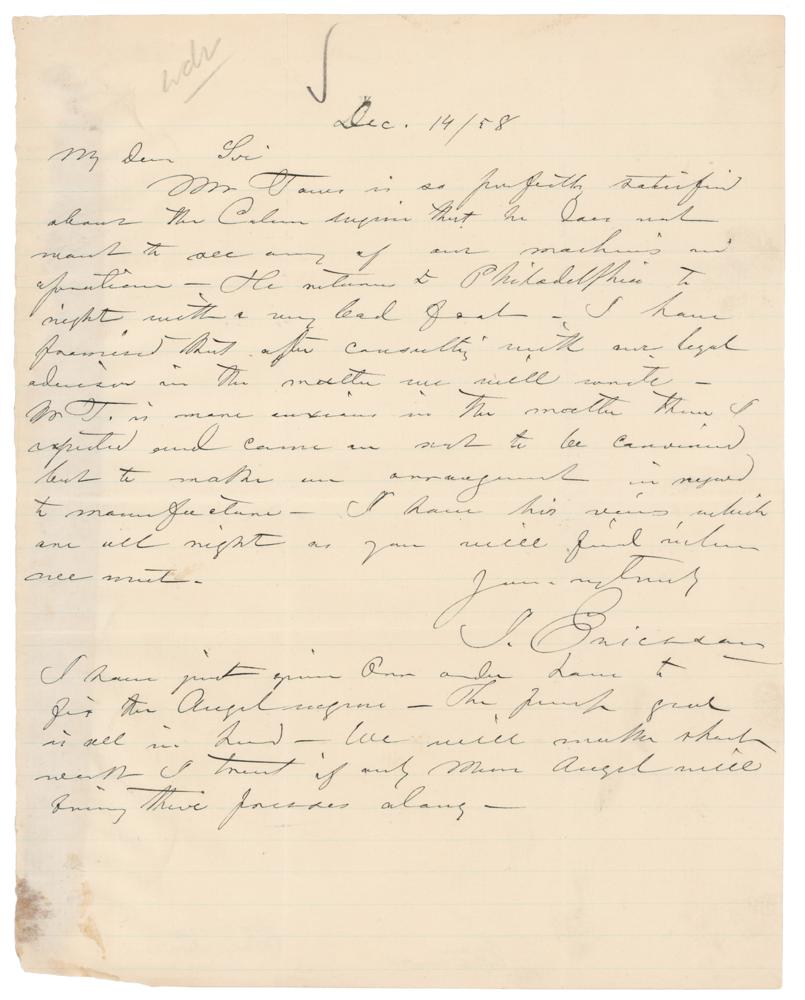 Dec. 14/58
My Dear Sir
Mr Towne is so perfectly satisfied
about the Caloric engine that he does not
want to see any of our machines in
operation – He returns to Philadelphia to
night with a very bad foot – I have
promised that after consulting with our legal
advisor in the matter we will write –
Mr T. is more anxious in the matter than I
expected and came on not to be convinced
but to make an arrangement in regard
to manufacture – I have his views which
are all right as you will find when
we meet –
Yours very truly
J. Ericsson
I have just given order to
fix the Angel engine – The
is all in hand – We will make short
work I trust if only Mons Angel will
bring three presses along –